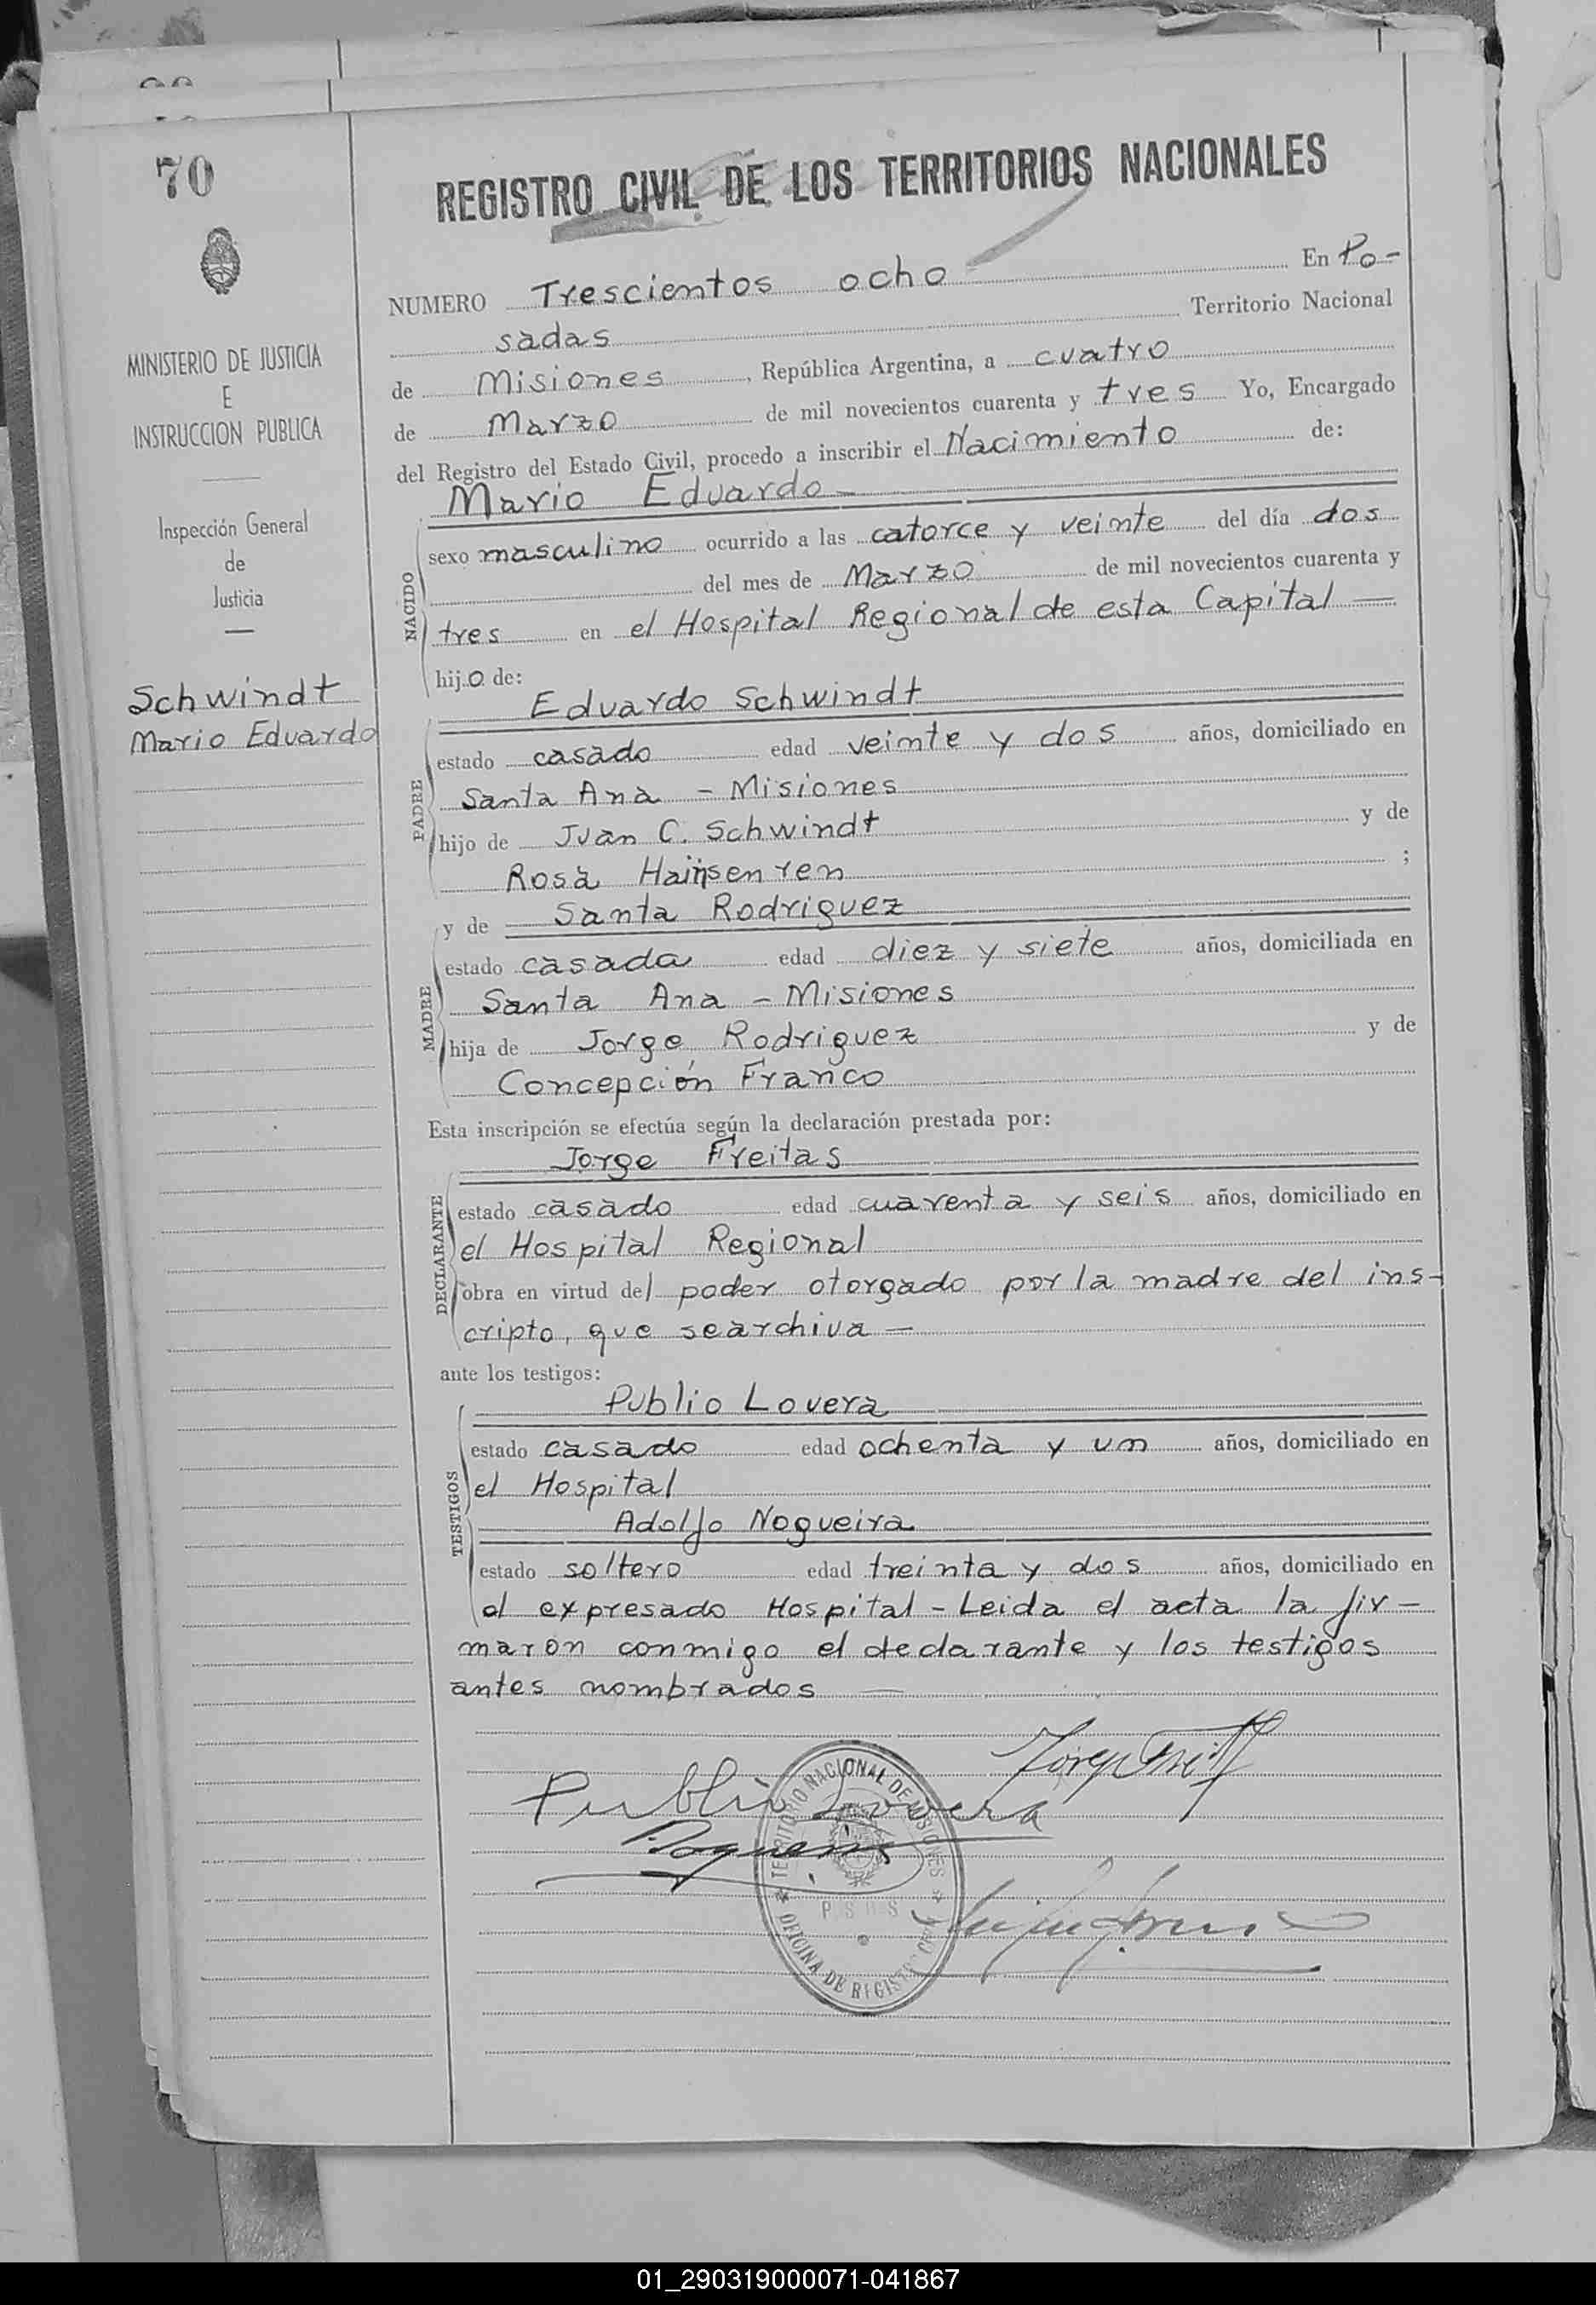 70
MINISTERIO DE JUSTICIA
E
INSTRUCCION PUBLICA
Inspección General
de
Justicia
Schwindt
Mario Eduardo
REGISTRO CIVIL DE LOS TERRITORIOS NACIONALES
NUMERO Trescientos ocho En Po-
sadas Territorio Nacional
de Misiones, República Argentina, a cuatro
de Marzo de mil novecientos cuarenta y tres Yo, Encargado
del Registro del Estado Civil, procedo a inscribir el Nacimiento de:
Mario Eduardo -
NACIDO
sexo masculino ocurrido a las catorce y veinte del día dos
del mes de Marzo de mil novecientos cuarenta y
tres en el Hospital Regional de esta Capital —
hijo de:
Eduardo Schwindt
PADRE
estado casado edad veinte y dos años, domiciliado en
Santa Ana - Misiones
hijo de Juan C. Schwindt y de
Rosa ;
y de Santa Rodriguez
MADRE
estado casada edad diez y siete años, domiciliada en
Santa Ana - Misiones
hija de Jorge Rodriguez y de
Concepción Franco
Esta inscripción se efectúa según la declaración prestada por:
Jorge Freitas
DECLARANTE
estado casado edad cuarenta y seis años, domiciliado en
el Hospital Regional
obra en virtud del poder otorgado por la madre del ins-
cripto, que se archiva —
ante los testigos:
Publio Lovera
TESTIGOS
estado casado edad ochenta y un años, domiciliado en
el Hospital
Adolfo Nogueira
estado soltero edad treinta y dos años, domiciliado en
el expresado Hospital - Leida el acta la fir-
maron conmigo el declarante y los testigos
antes nombrados —
Publio Lovera
Nogueira
TERRITORIO NACIONAL DE MISIONES
OFICINA DE REGISTRO
01_290319000071-041867